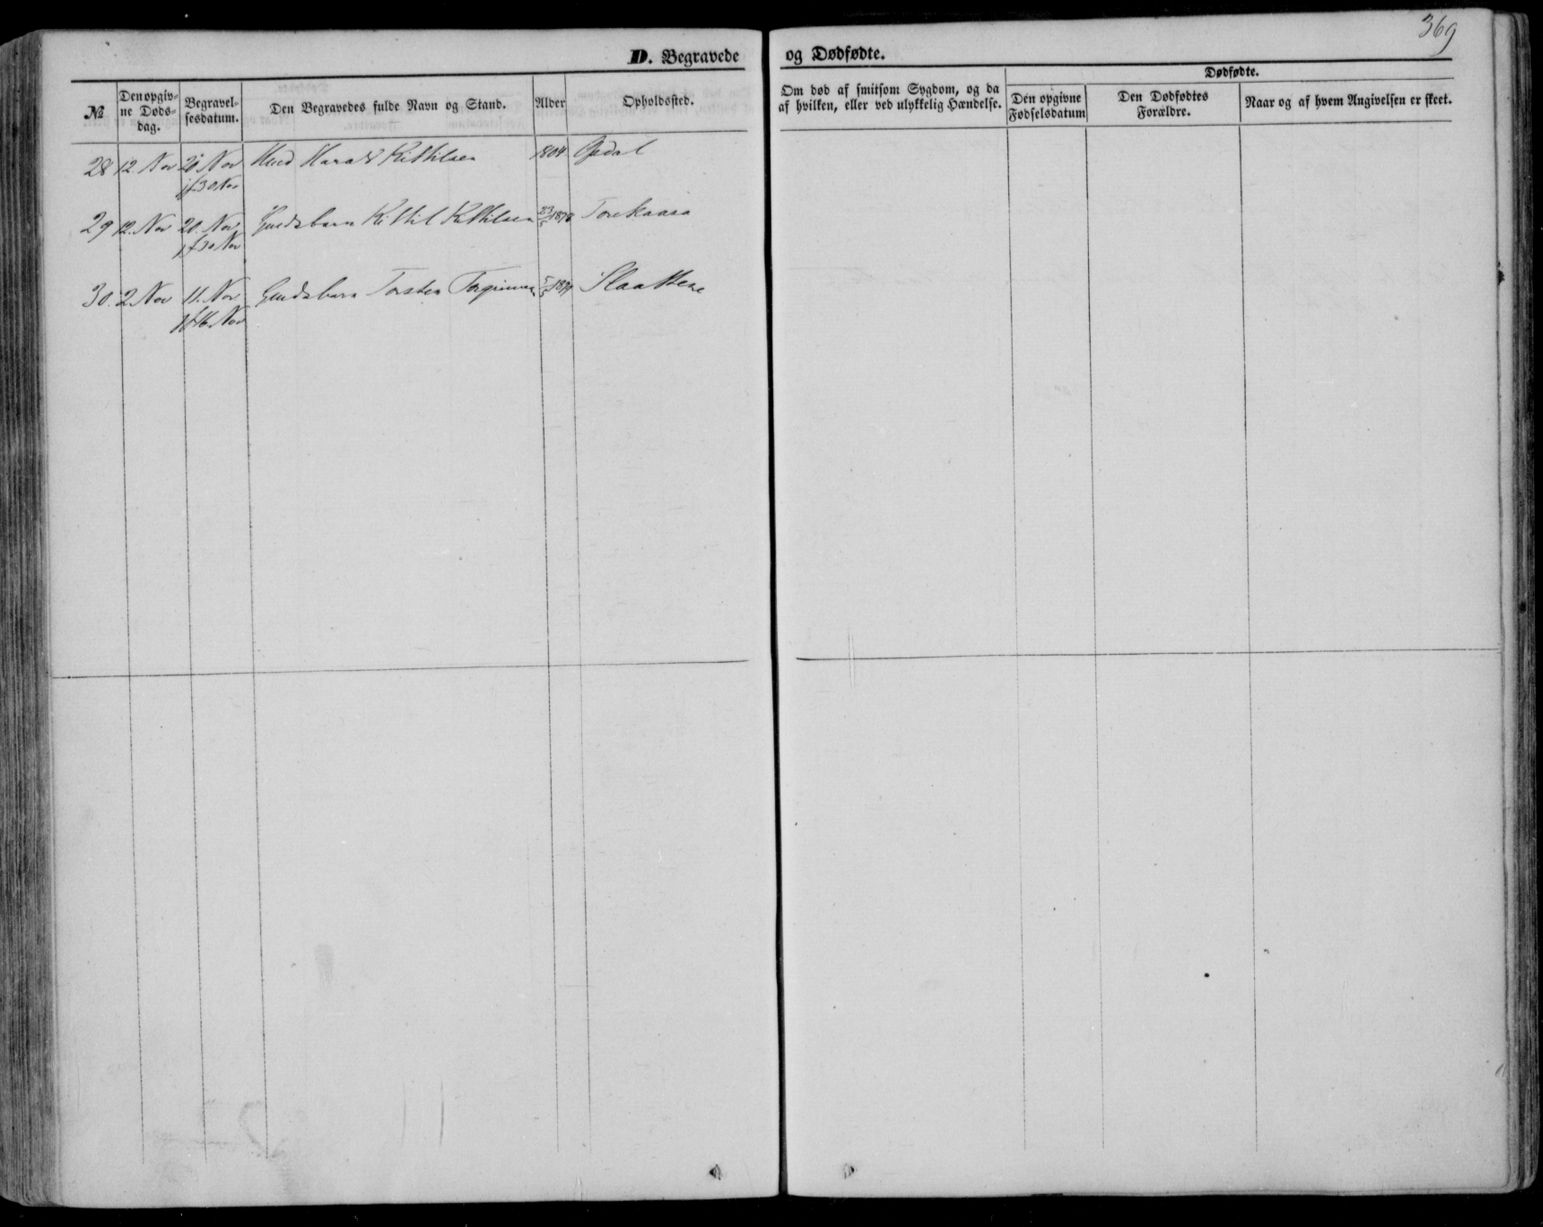 369
D. Begravede og Dødfødte.
№
Den opgiv-
ne Døds-
dag.
Begravel-
sesdatum.
Den Begravedes fulde Navn og Stand.
Alder
Opholdssted.
Om død af smitsom Sygdom, og da
af hvilken, eller ved ulykkelig Hændelse.
Dødfødte.
Den opgivne
Fødselsdatum
Den Dødfødtes
Forældre.
Naar og af hvem Angivelsen er skeet.
28 12 Nov 20 Nov Harald Kittilsen 1804 Opdal
jf 30 Nov
29 12. Nov 20. Nov Gudsbarn Kittil Kittilsen Torekaasa
jf 30 Nov
30. 2 Nov 11. Nov Gudsbarn Torsten Slaattene
jf 16. Nov